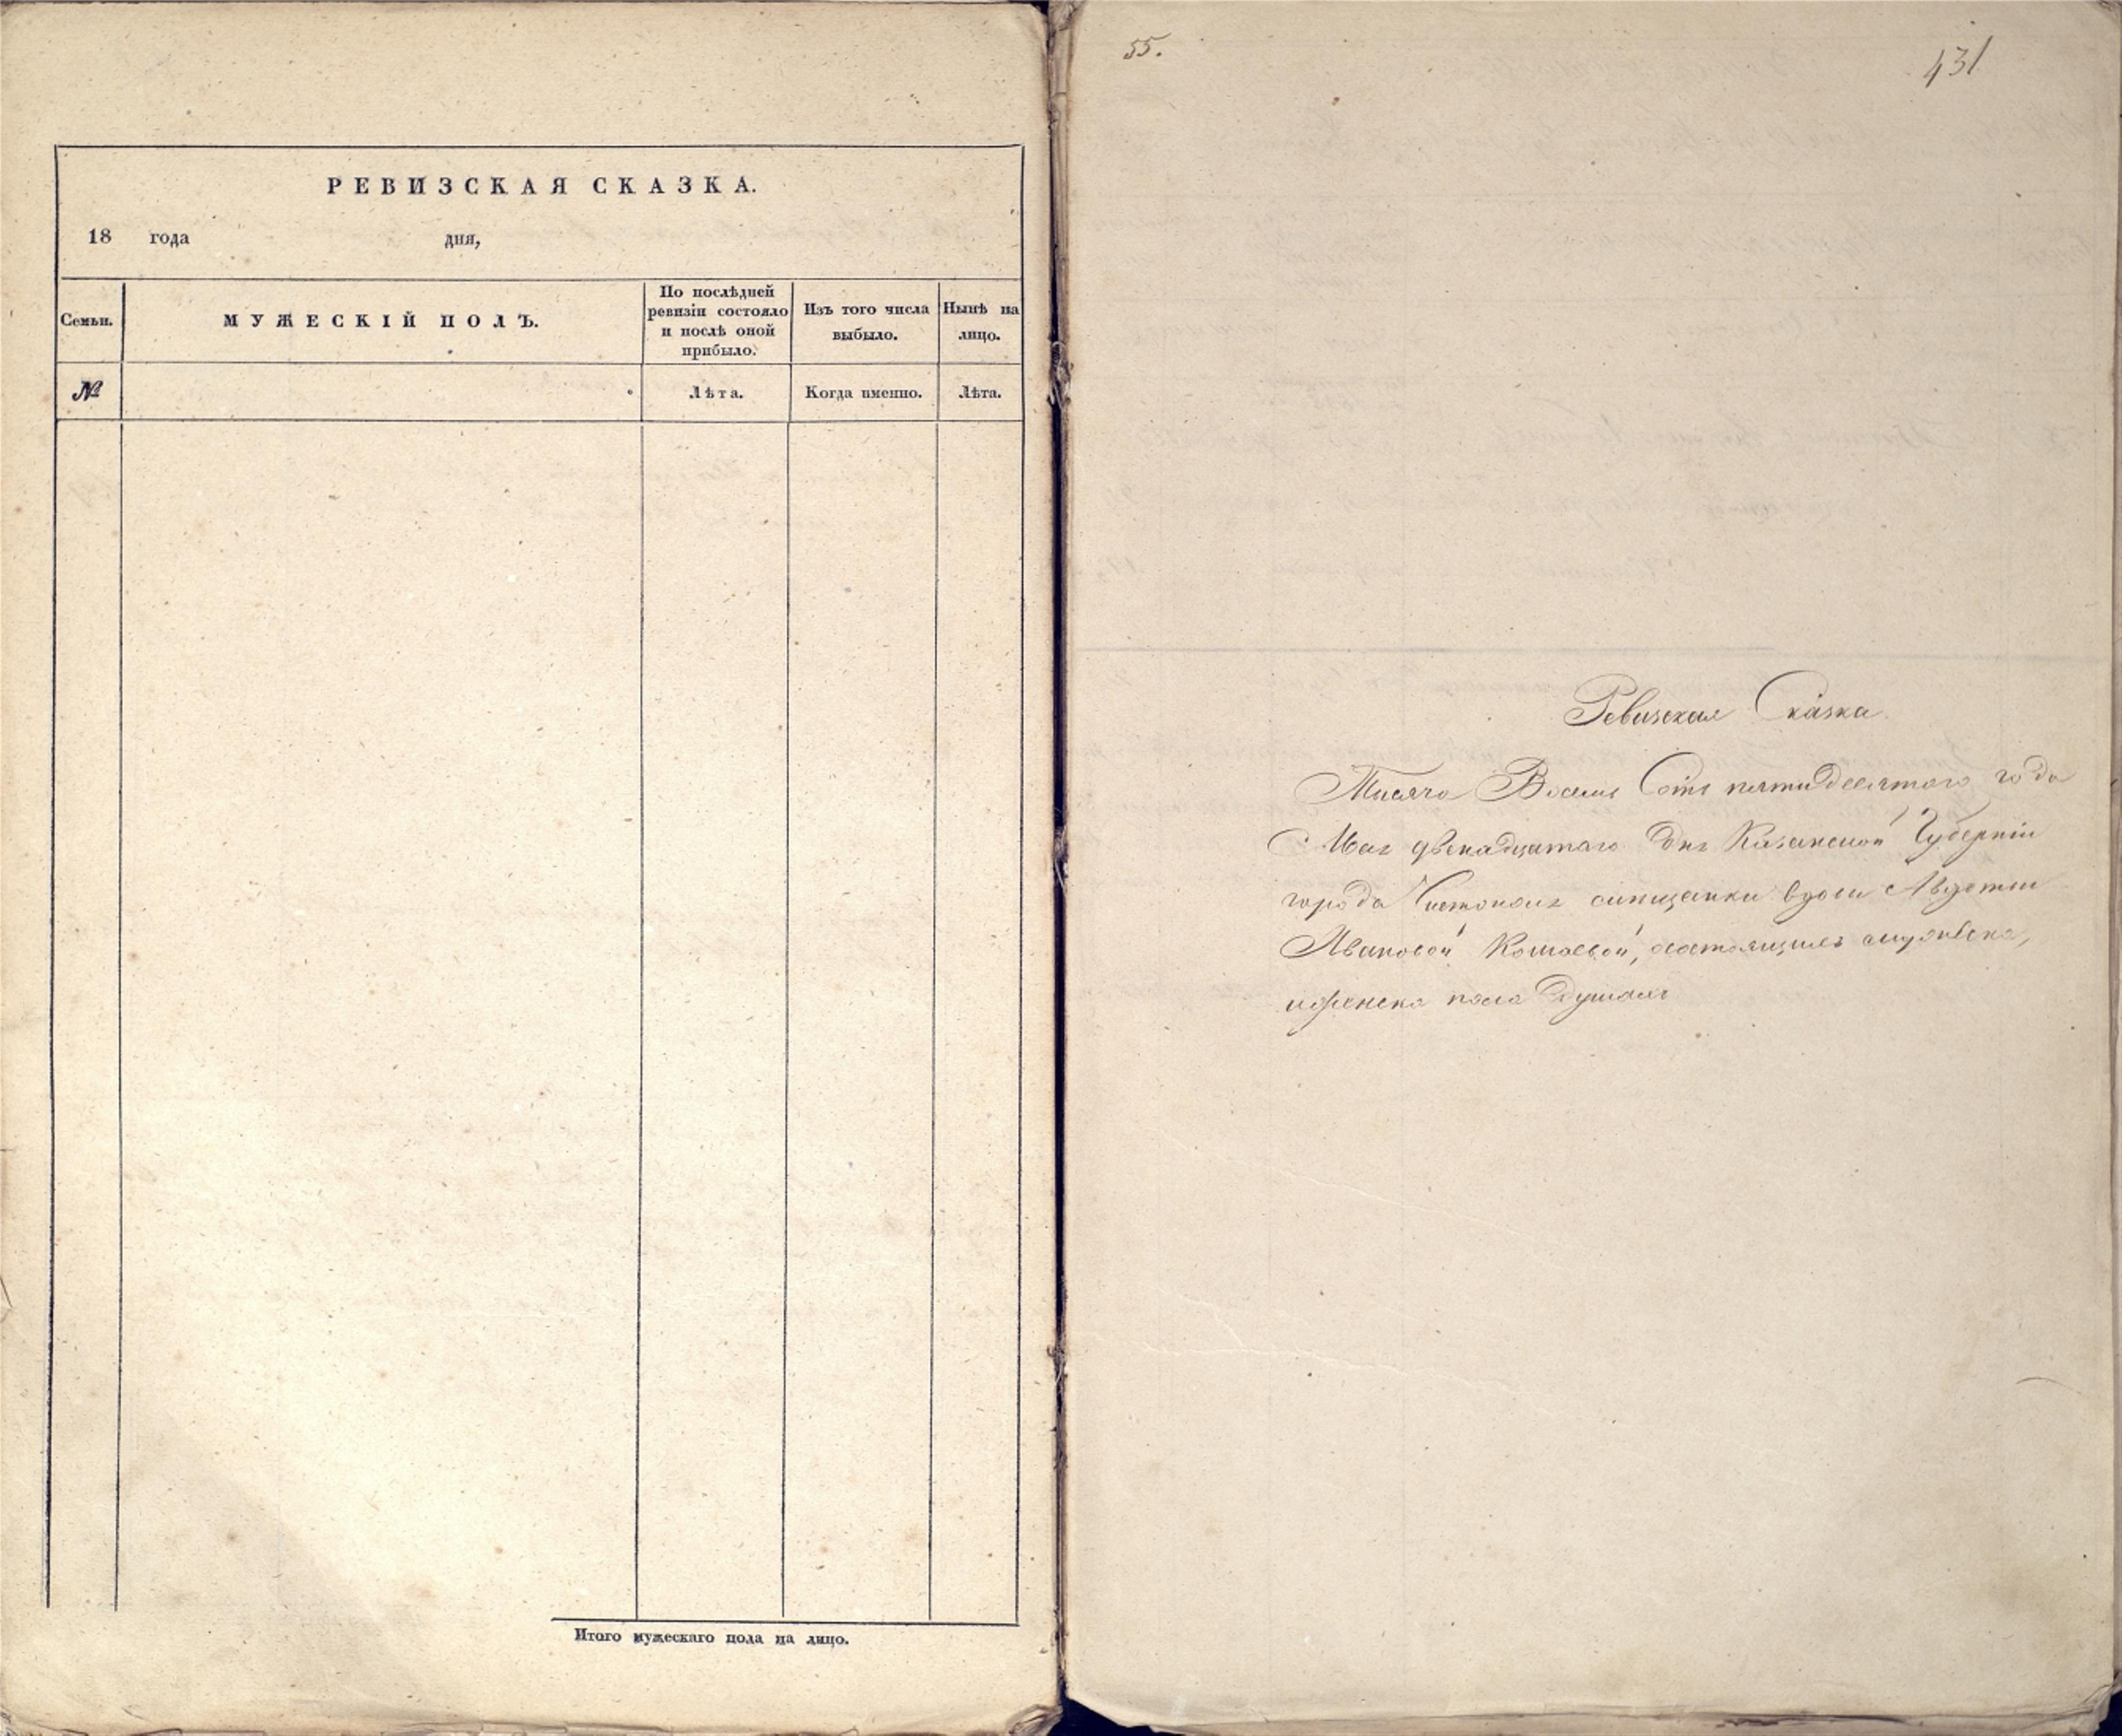 РЕВИЗСКАЯ СКАЗКА.
18 года дня,
Семьи.
МУЖЕСКІЙ ПОЛЪ.
По послѣдней
ревизіи состояло
и послѣ оной
прибыло.
Изъ того числа
выбыло.
Нынѣ на
лицо.
№
Лѣта.
Когда именно.
Лѣта.
Итого мужескаго пола на лицо.
55.
431
Ревизская Сказка
Тысяча Восемь Сотъ пятидесятого года
Мая двенадцатаго дня Казанской Губерніи
города Чистополя вдовы
Ивановой состоящимъ
иженска пола душамъ